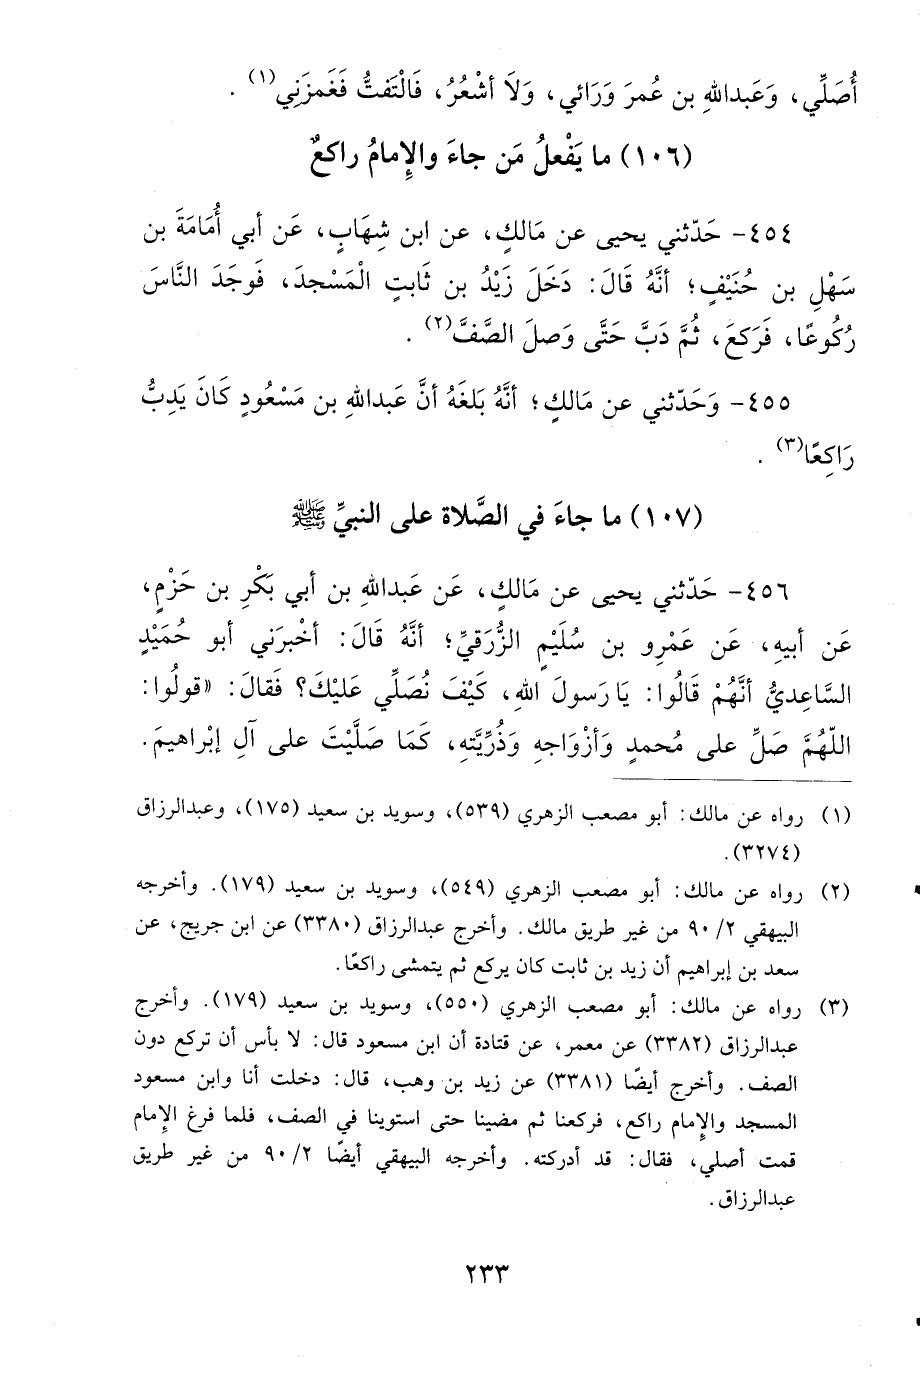 أُصَلِّي، وَعَبدالله بن عُمرَ وَرَائي، وَلاَ أشْعُرُ، فَالْتَفتُّ فَغَمزَنِي(١).
(١٠٦) ما يَفْعلُ مَن جاءَ والإمامُ راكعٌ
٤٥٤- حَدّثني يحيى عن مَالكٍ، عن ابن شِهَابٍ، عَن أبي أُمَامَةَ بن
سَهْلِ بن حُنَيْفٍ؛ أنَّهُ قَالَ: دَخَلَ زَيْدُ بن ثَابتٍ الْمَسْجدَ، فَوجَدَ النَّاسَ
رُكُوعًا، فَرَكعَ، ثُمَّ دَبَّ حَتَّى وَصلَ الصَّفَّ(٢).
٤٥٥- وَحَدّثني عن مَالكٍ؛ أنَّهُ بَلغَهُ أنَّ عَبدالله بن مَسْعُودٍ كَانَ يَدِبُّ
رَاكِعًا(٣).
(١٠٧) ما جاءَ في الصَّلاة على النبيِّ ﷺ
٤٥٦- حَدّثني يحيى عن مَالكٍ، عَن عَبدالله بن أبي بَكْرِ بن حَزْمٍ،
عَن أبيهِ، عَن عَمْرِو بن سُلَيْمٍ الزُّرَقيِّ؛ أنَّهُ قَالَ: أخْبرَني أبو حُمَيْدٍ
السَّاعِديُّ أنَّهُمْ قَالُوا: يَا رَسولَ الله، كَيْفَ نُصَلِّي عَليْكَ؟ فَقالَ: «قولُوا:
اللّهُمَّ صَلِّ على مُحمدٍ وَأزْوَاجهِ وَذُرِّيَّتهِ، كَمَا صَلَّيْتَ على آلِ إبْراهيمَ.
(١) رواه عن مالك: أبو مصعب الزهري (٥٣٩)، وسويد بن سعيد (١٧٥)، وعبدالرزاق
(٣٢٧٤).
(٢) رواه عن مالك: أبو مصعب الزهري (٥٤٩)، وسويد بن سعيد (١٧٩). وأخرجه
البيهقي ٢/ ٩٠ من غير طريق مالك. وأخرج عبدالرزاق (٣٣٨٠) عن ابن جريج، عن
سعد بن إبراهيم أن زيد بن ثابت كان يركع ثم يتمشى راكعًا.
(٣) رواه عن مالك: أبو مصعب الزهري (٥٥٠)، وسويد بن سعيد (١٧٩). وأخرج
عبدالرزاق (٣٣٨٢) عن معمر، عن قتادة أن ابن مسعود قال: لا بأس أن تركع دون
الصف. وأخرج أيضًا (٣٣٨١) عن زيد بن وهب، قال: دخلت أنا وابن مسعود
المسجد والإمام راكع، فركعنا ثم مضينا حتى استوينا في الصف، فلما فرغ الإمام
قمت أصلي، فقال: قد أدركته. وأخرجه البيهقي أيضًا ٢/ ٩٠ من غير طريق
عبدالرزاق.
٢٣٣